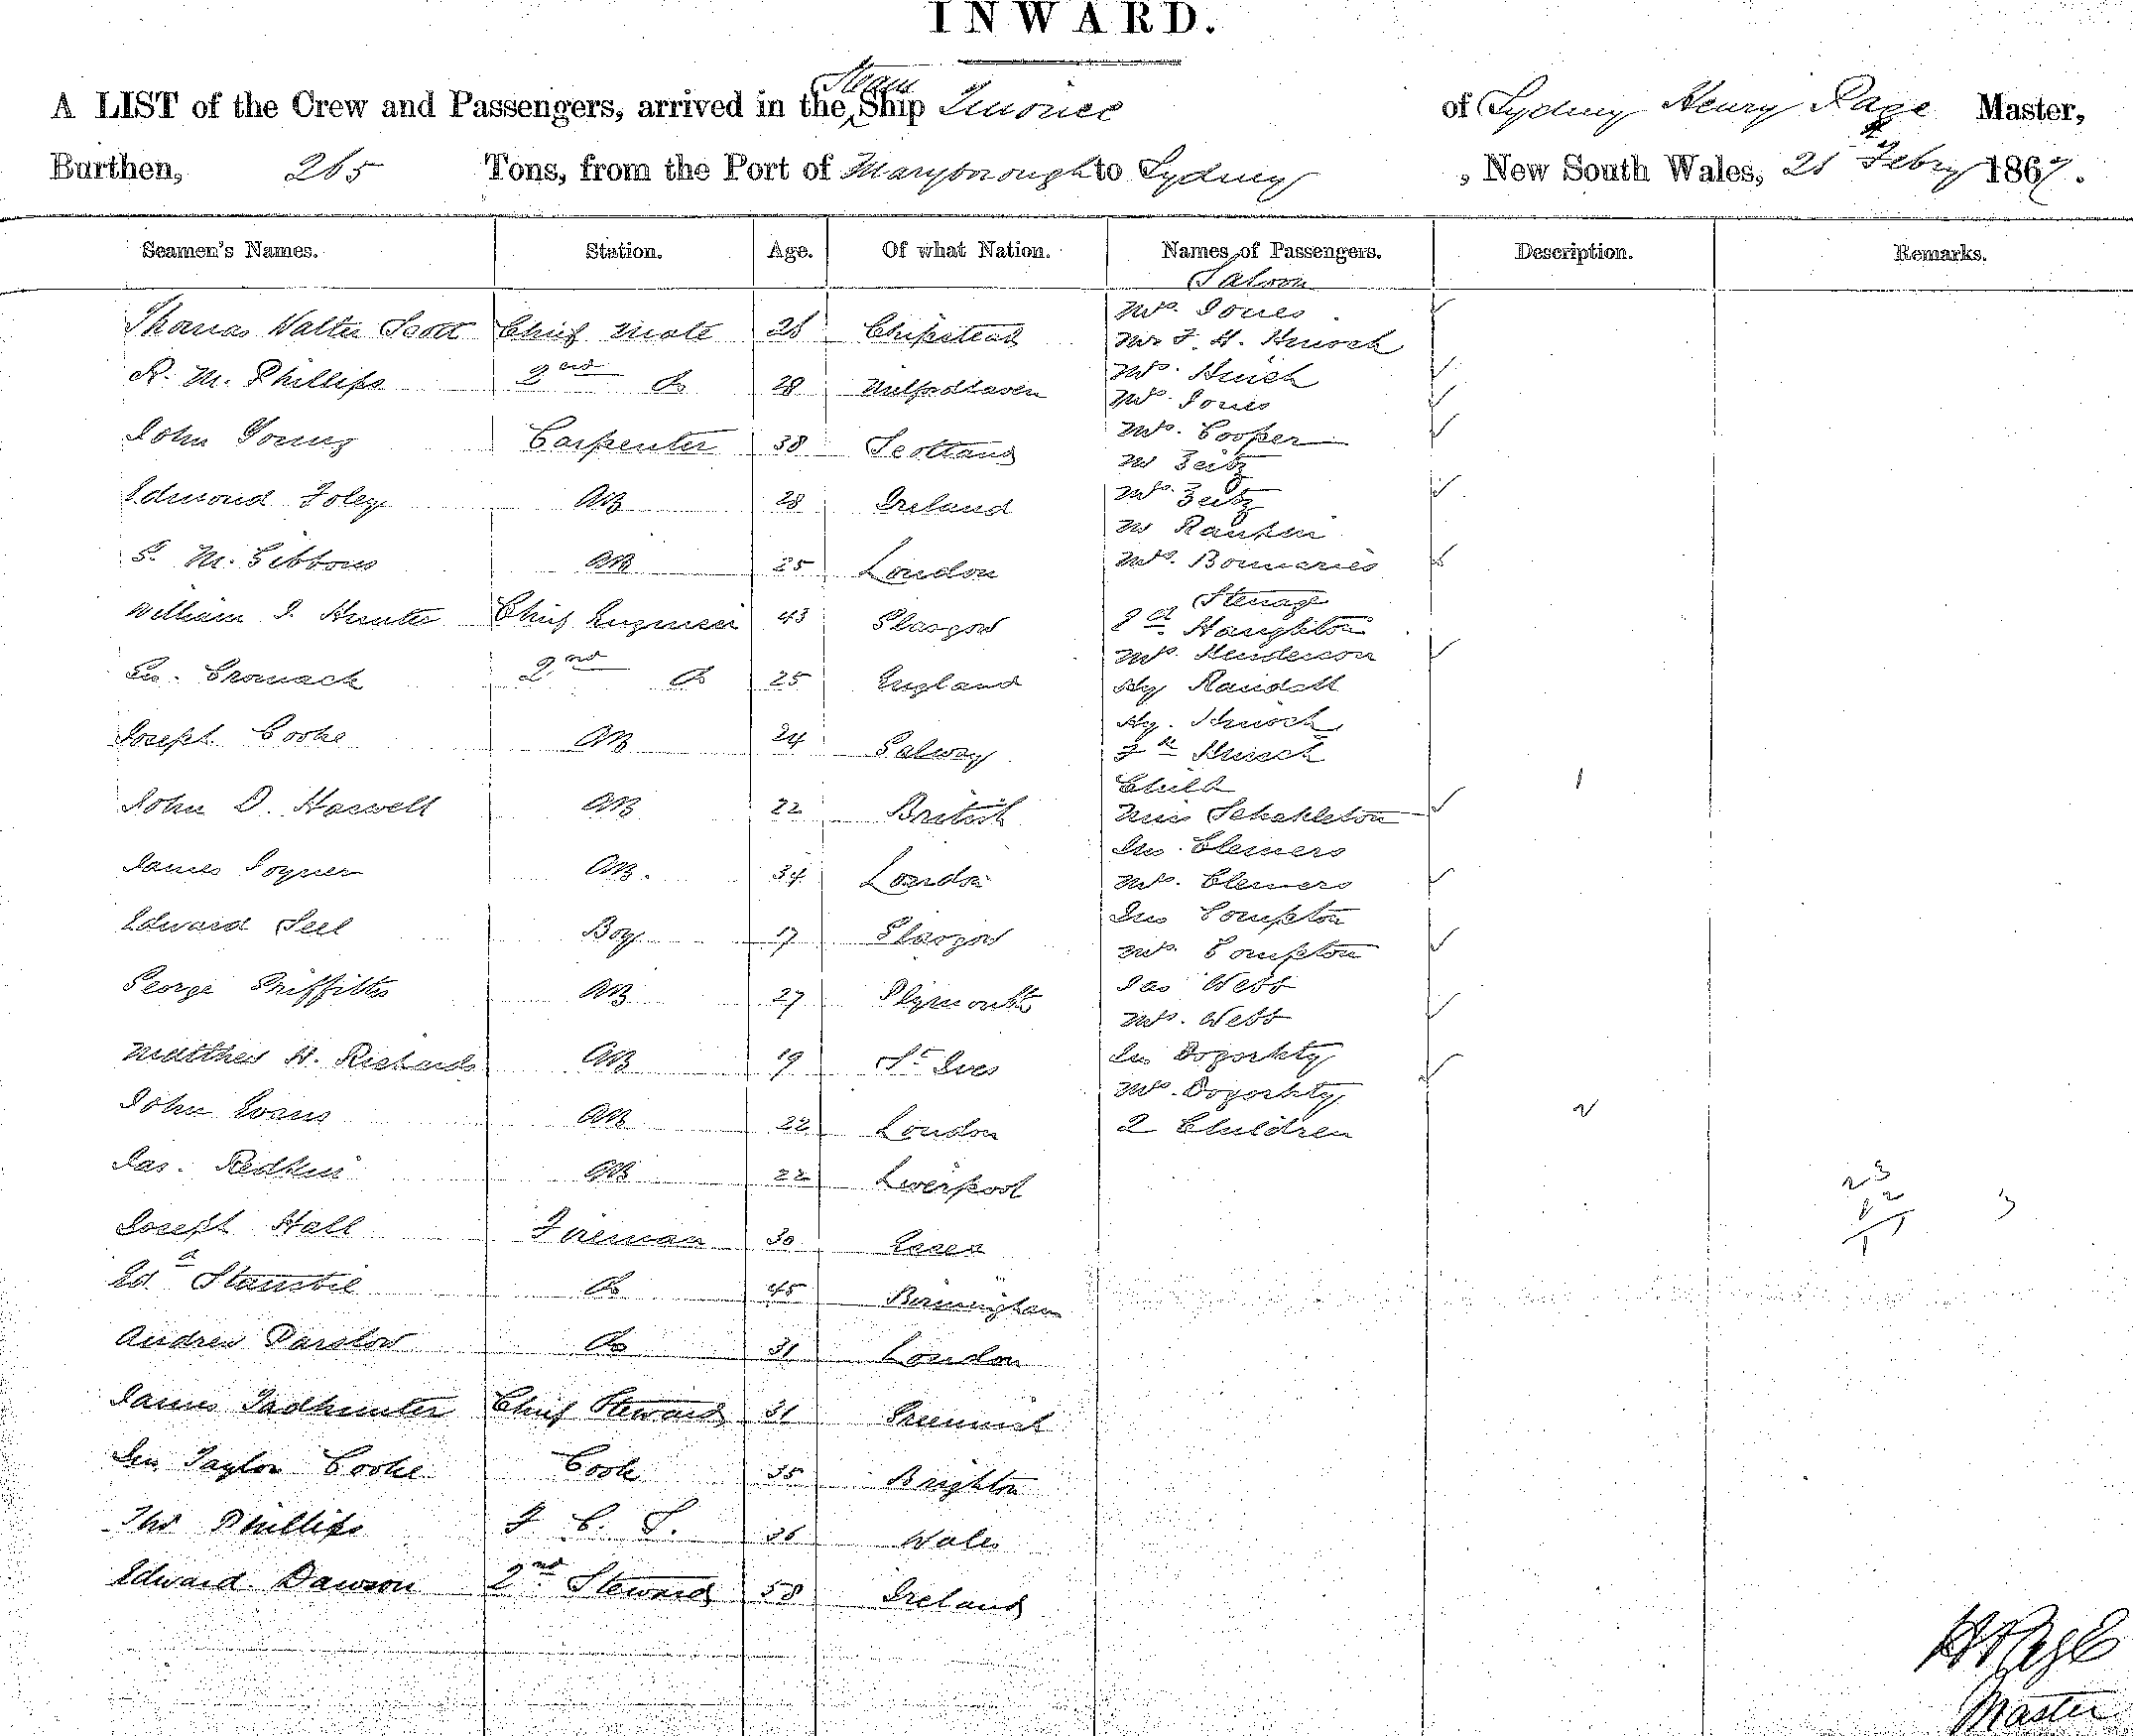 INWARD.
A LIST of the Crew and Passengers, arrived in the Steam Ship of Sydney Henry Page Master,
Burthen, 265 Tons, from the Port of Maryborough to Sydney, New South Wales, 21 Febry 1867.
Seamen's Names. Station. Age. Of what Nation. Names of Passengers. Description. Remarks.
Saloon
Mrs. Jones
Thomas Walter Scott Chief Mate 28 Chipstead
R. M. Phillips 2nd Do 28 Milford Haven
Mrs. Jones
John Young Carpenter 38 Scotland Mrs. Cooper
Mr Zeitz
Edmond Foley AB 28 Ireland Mrs. Zeitz
Mr Rankin
G. M. Gibbons AB 25 London
Steerage
William J. Hunter Chief Engineer 43 Glasgow Haughton
Mrs. Henderson
Jno. Cromack 2nd Do 25 England Hy Randall
Joseph Cooke AB 24 Galway
Child
John D. Haswell AB 22 British Miss Schakleton
Jno. Clemers
James Joyner AB. 34 London Mrs. Clemers
Jno Compton
Edward Seel Boy 17 Glasgow Mrs. Compton
George Griffiths AB 27 Plymouth Jas Webb
Mrs. Webb
Matthew H. Richards AB 19 St Ives Jno Dogorkty
Mrs. Dogorkty
John Evans AB 22 London 2 Children
Jas. Redkin AB 22 Liverpool
23
Joseph Hall Fireman 30 Essex
Ed. Stanstil Do 45 Birmingham
Andrew Parslow Do 31 London
James Tadhunter Chief Steward 31 Greenwich
Jno Taylor Cooke Cook 35 Brighton
Thos Phillips F. C. S. 36 Wales
Edward Dawson 2nd Steward 58 Ireland
H Page
Master